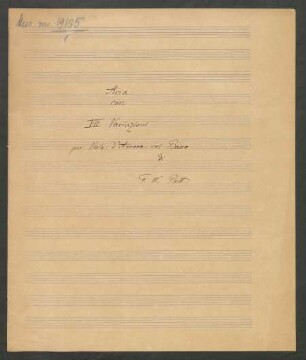 Mus. ms. 19105
Aria
con
III Variazioni
per Viola d'Amore col Basso
di
F. W. Rust